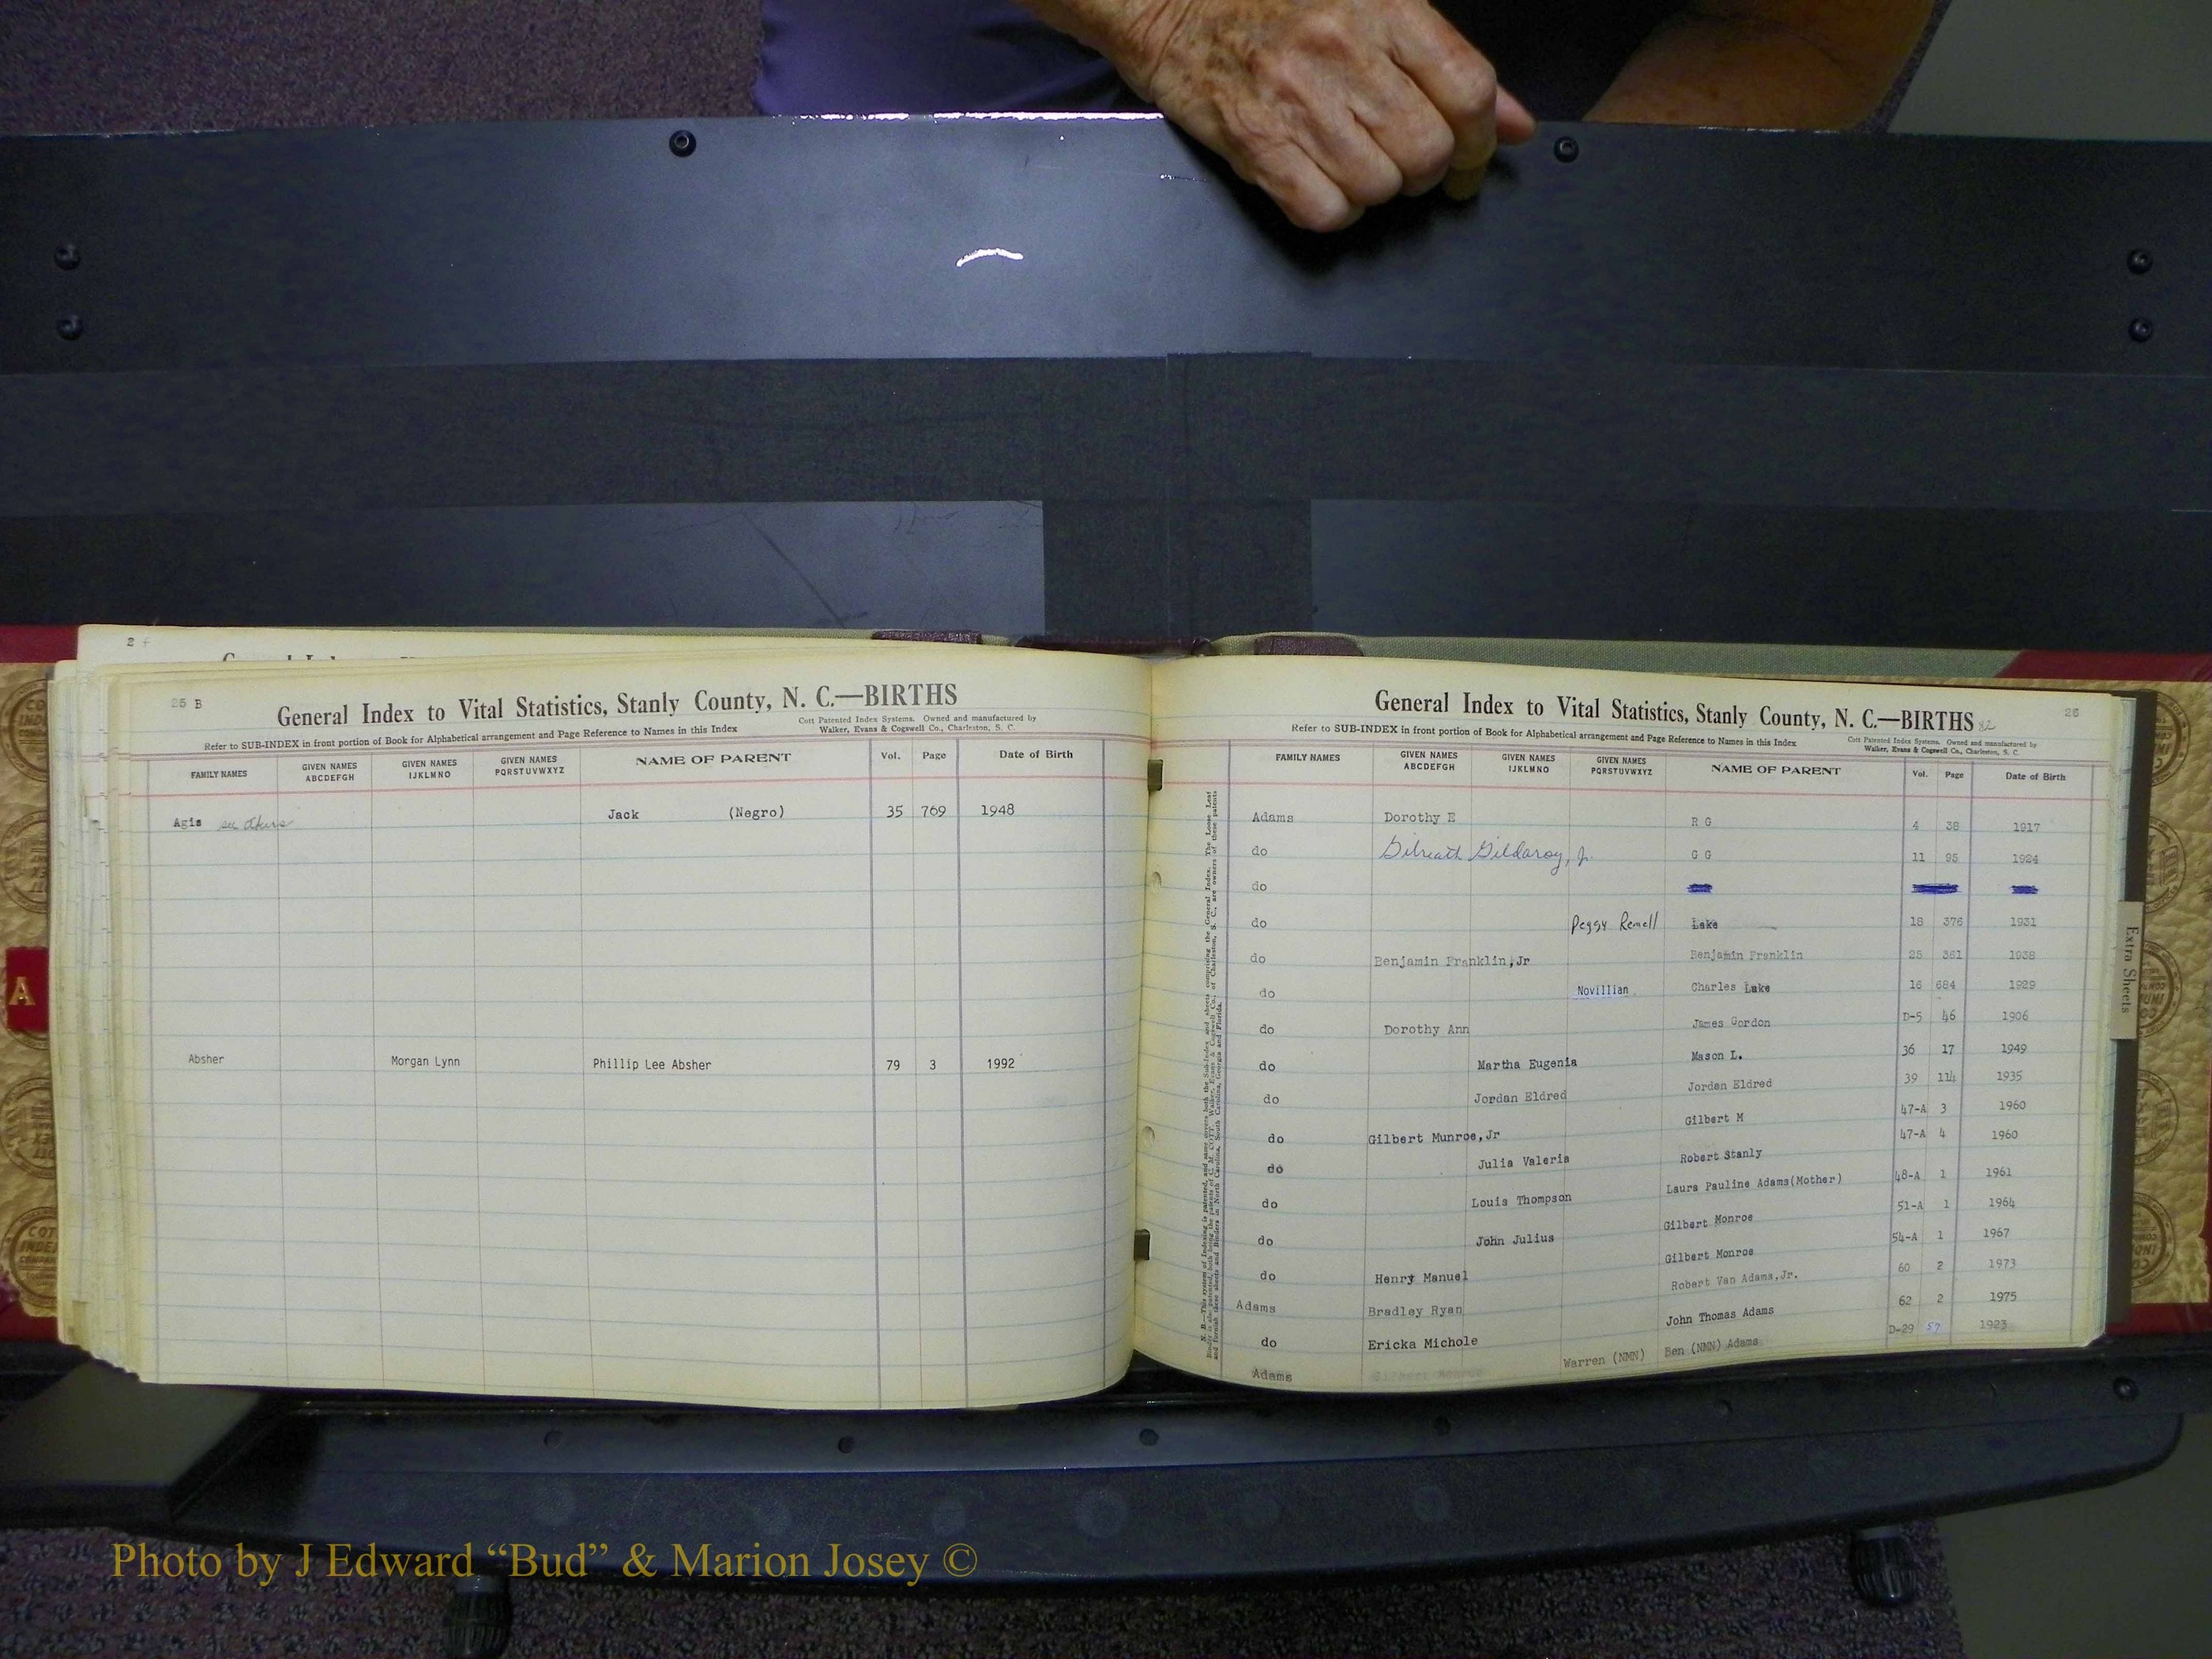 25 B
General Index to Vital Statistics, Stanly County, N. C.—BIRTHS
Refer to SUB-INDEX in front portion of Book for Alphabetical arrangement and Page Reference to Names in this Index
Cott Patented Index Systems. Owned and manufactured by
Walker, Evans & Cogswell Co., Charleston, S. C.
FAMILY NAMES GIVEN NAMES ABCDEFGH GIVEN NAMES IJKLMNO GIVEN NAMES PQRSTUVWXYZ NAME OF PARENT Vol. Page Date of Birth
Agis see Jack (Negro) 35 769 1948
Absher Morgan Lynn Phillip Lee Absher 79 3 1992
A
General Index to Vital Statistics, Stanly County, N. C.—BIRTHS 82
26
Refer to SUB-INDEX in front portion of Book for Alphabetical arrangement and Page Reference to Names in this Index
Cott Patented Index Systems. Owned and manufactured by
Walker, Evans & Cogswell Co., Charleston, S. C.
FAMILY NAMES GIVEN NAMES ABCDEFGH GIVEN NAMES IJKLMNO GIVEN NAMES PQRSTUVWXYZ NAME OF PARENT Vol. Page Date of Birth
Adams Dorothy E R G 4 38 1917
do Gilreath Gildaroy, Jr. G G 11 95 1924
do
do Peggy Remell Lake 18 376 1931
do Benjamin Franklin,Jr Benjamin Franklin 25 361 1938
do Novillian Charles Luke 16 684 1929
do Dorothy Ann James Gordon D-5 46 1906
do Martha Eugenia Mason L. 36 17 1949
do Jordan Eldred Jordan Eldred 39 114 1935
do Gilbert Munroe,Jr Gilbert M 47-A 3 1960
do Julia Valeria Robert Stanly 47-A 4 1960
do Louis Thompson Laura Pauline Adams(Mother) 48-A 1 1961
do John Julius Gilbert Monroe 51-A 1 1964
do Henry Manuel Gilbert Monroe 54-A 1 1967
Adams Bradley Ryan Robert Van Adams,Jr. 60 2 1973
do Ericka Michole John Thomas Adams 62 2 1975
Adams Warren (NMN) Ben (NMN) Adams D-29 57 1923
Extra Sheets
Photo by J Edward “Bud” & Marion Josey ©